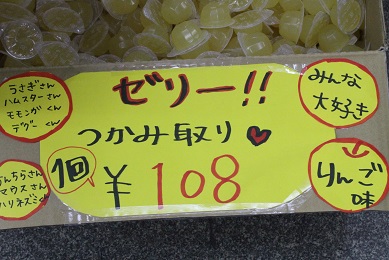 うさぎさん
ハムスターさん
モモンガくん
デグーくん
ゼリー!!
みんな
大好き
つかみ取り
1個
¥108
りんご
味
マウスさん
ハリネズミくん